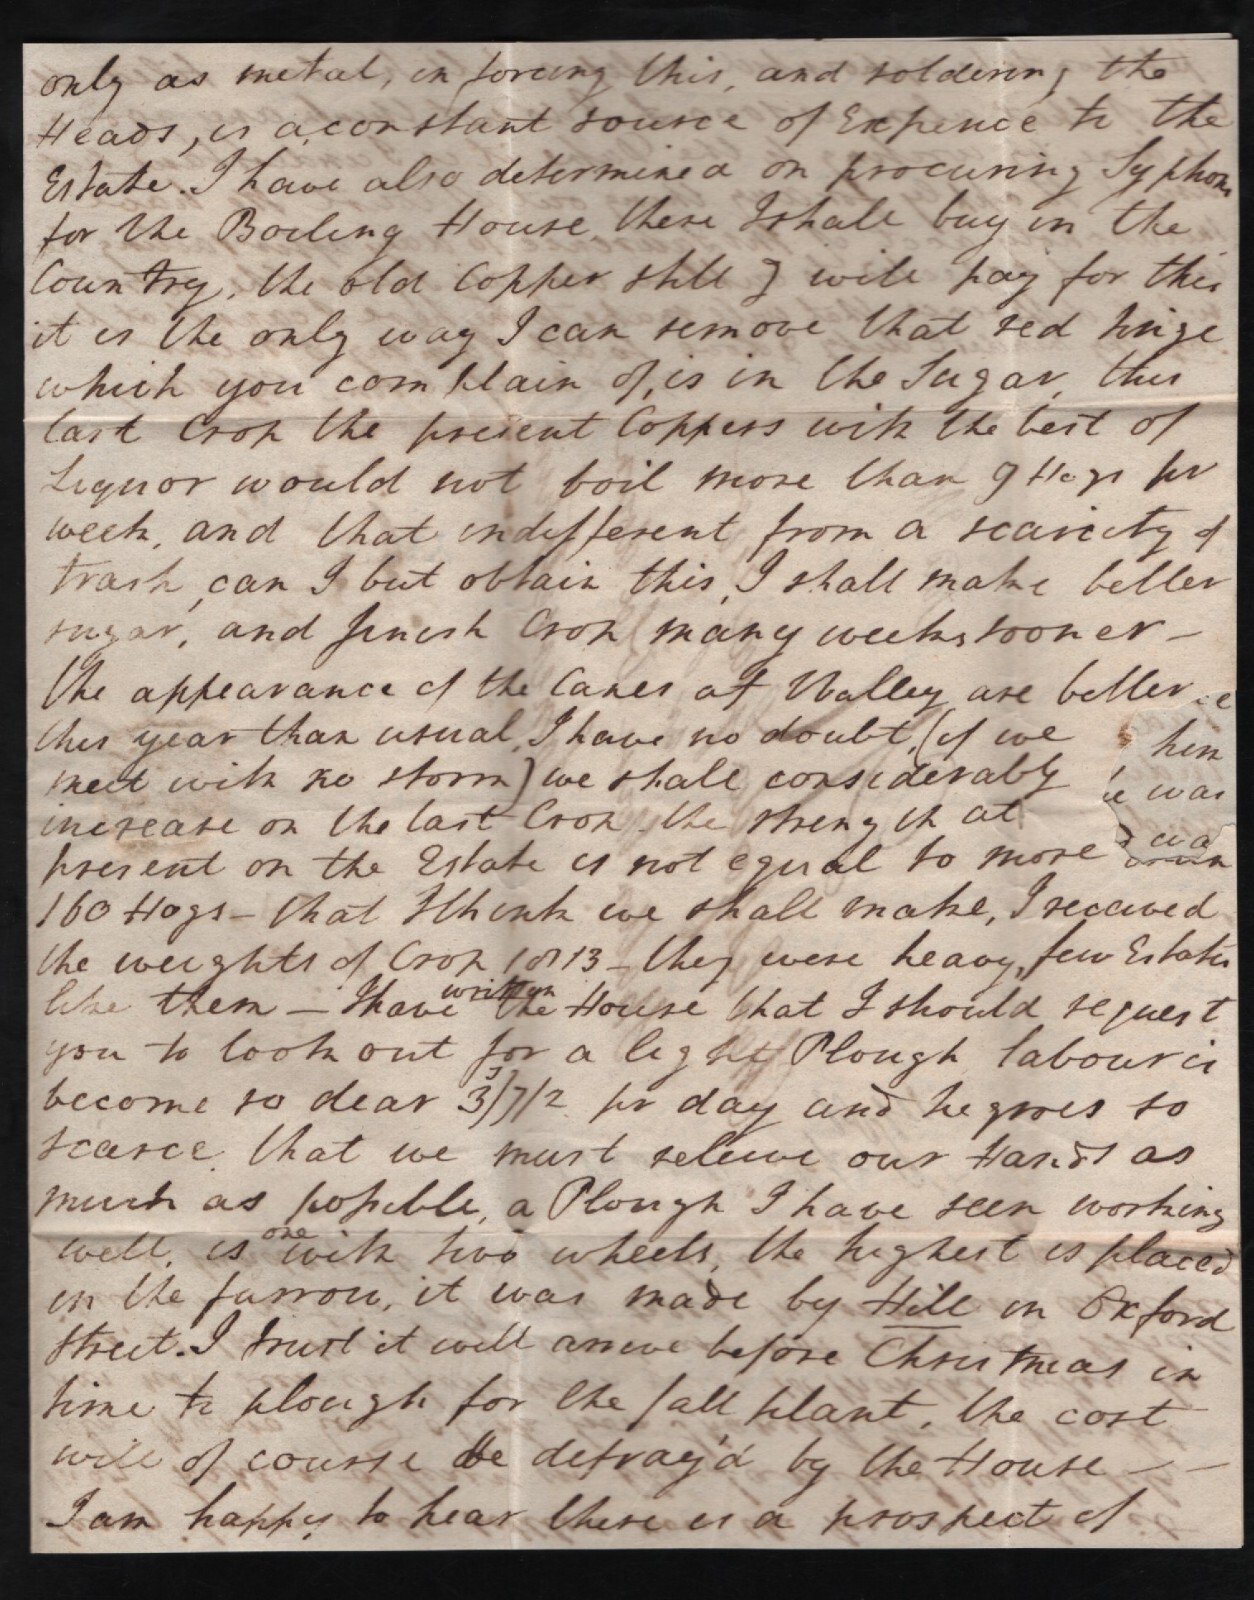 only as metal, in forcing this, and soldering the
Heads, is a constant source of Expence to the
Estate. I have also determined on procuring Syphons
for the Boiling House, these I shall buy in the
Country, the old Copper still I will pay for this
it is the only way I can remove that red tinge
which you complain of, is in the Sugar, this
last Crop the present Coppers with the best of
Liquor would not boil more than 9 Hogs pr
week, and that indifferent from a scarcity of
trash, can I but obtain this, I shall make better
sugar, and finish Crop many weeks sooner -
The appearance of the Canes at Valley are better
this year than usual, I have no doubt, (if we
meet with no storm) we shall considerably
increase on the last Crop - the strength at
present on the Estate is not equal to more
160 Hogs - that I think we shall make, I received
the weights of Crop 1813 - they were heavy, few Estates
like them - I have written the House that I should request
you to look out for a light Plough labour is
become so dear 3/7/2 pr day and negroes so
scarce, that we must releive our Hands as
much as possible, a Plough I have seen working
well, is one with two wheels, the highest is placed
in the furrow, it was made by Hill in Oxford
Street. I trust it will arrive before Christmas in
time to plough for the fall plant, the cost
will of course be defray'd by the House - -
I am happy to hear there is a prospect of
him
was